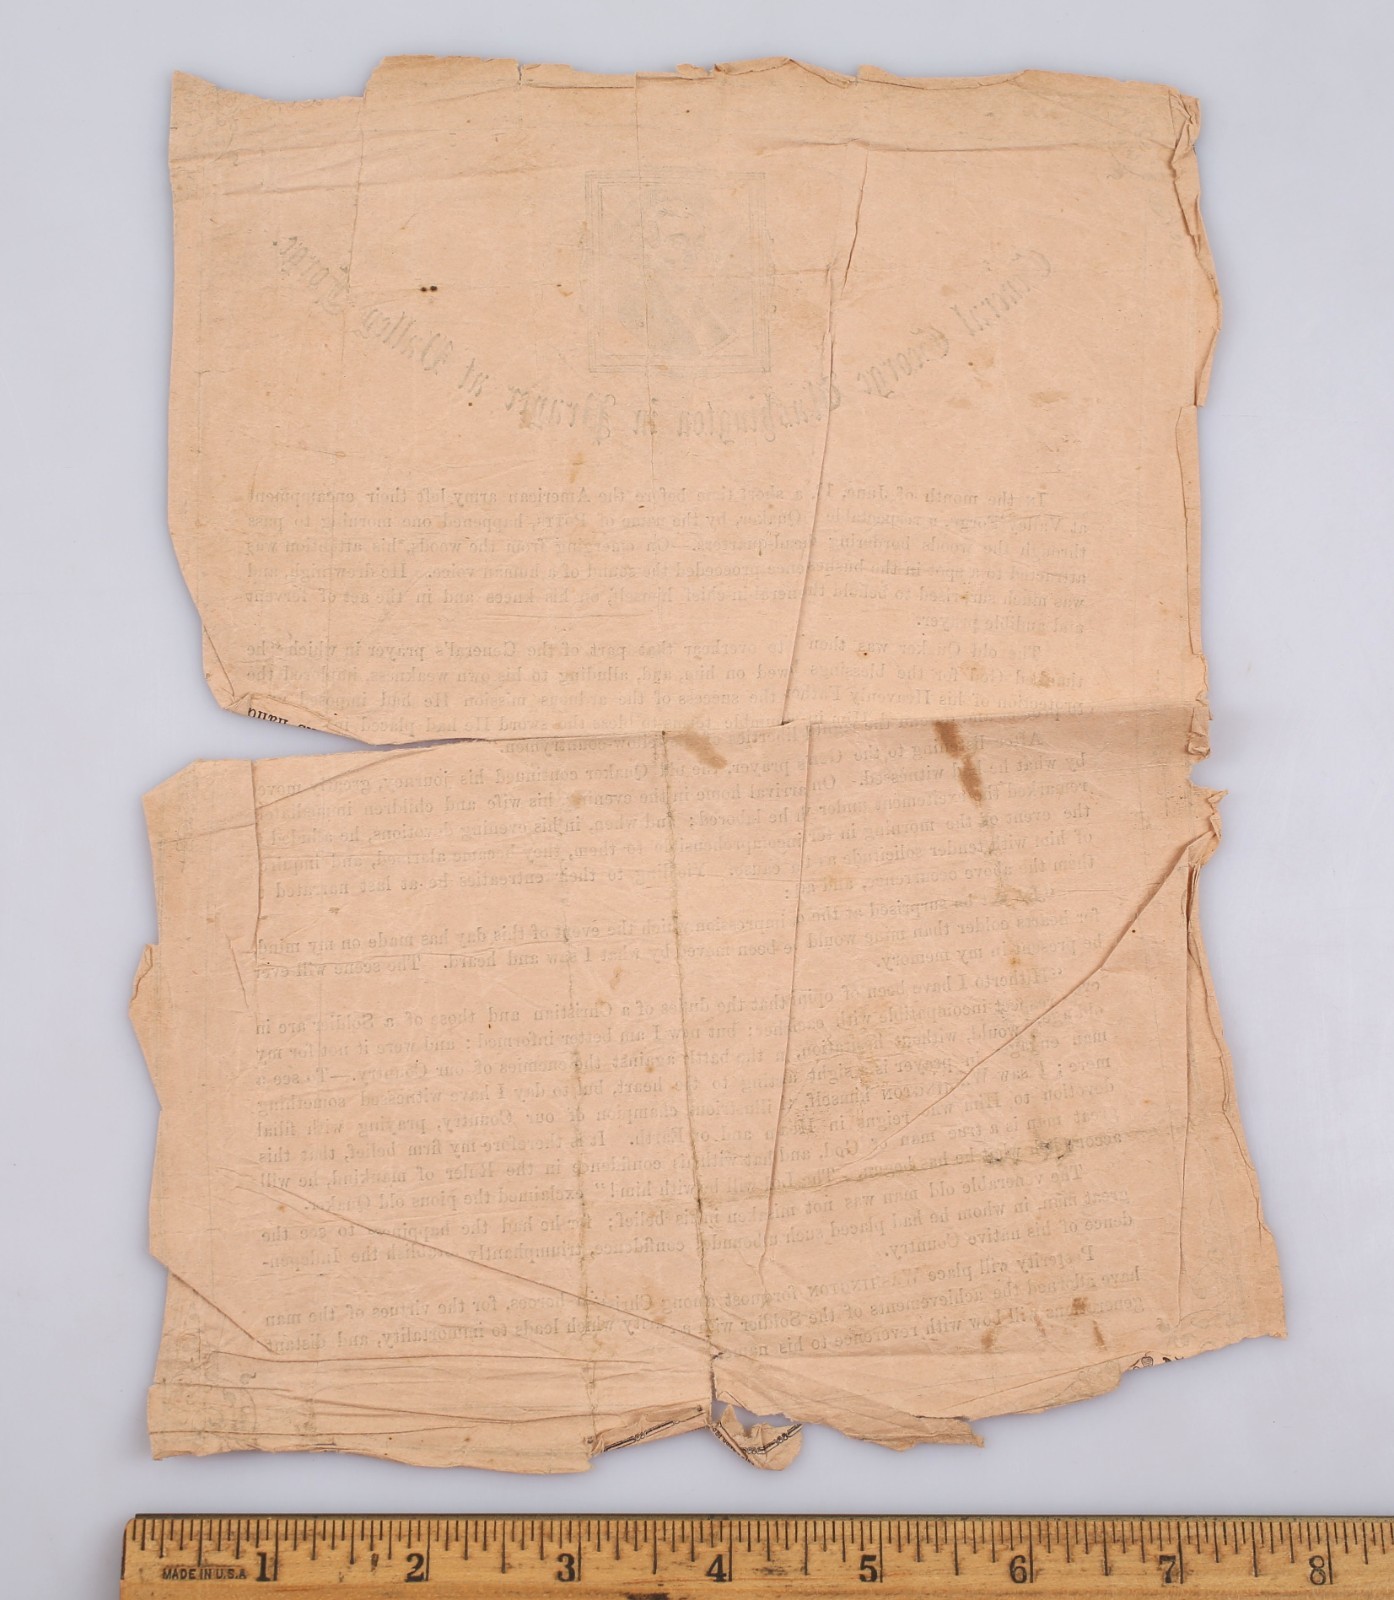 General George Washington in Prayer at Valley Forge.
In the month of June, a short time before the American army left their encampment
at Valley Forge, a respectable Quaker, by the name of POTTS, happened one morning to pass
through the woods bordering Head-quarters.—On emerging from the woods, his attention was
attracted to a spot in the bushes whence proceeded the sound of a human voice. He drew nigh, and
was much surprised to behold the General-in-chief himself, on his knees and in the act of fervent
and audible prayer.
The old Quaker was then to overhear that part of the General's prayer in which he
thanked God for the blessings on him, and, alluding to his own weakness, implored the
protection of his Heavenly Father the success of the arduous mission He had
the sword He had placed
fellow-countrymen.
After listening to the prayer, the old Quaker continued his journey, greatly moved
by what he had witnessed. On arrival home in the evening his wife and children immediately
remarked the excitement under which he labored; and when, in his evening devotions, he alluded
the event of the morning in terms incomprehensible to them, they became alarmed, and
of him with tender solicitude as to cause. Yielding to their entreaties he at last narrated
them the above occurrence, and
be surprised at the impression which the event of this day has made on my mind,
for hearts colder than mine would have been moved by what I saw and heard. The scene will ever
be present in my memory.
"Hitherto I have been of opinion that the duties of a Christian and those of a Soldier are in
incompatible with each other: but now I am better informed; and were it not for my
old age, I would, without hesitation, in the battle against the enemies of our Country.—To see a
man engaged in prayer is a sight to the heart, but to day I have witnessed something
more; I saw WASHINGTON himself, illustrious champion of our Country, praying with filial
devotion to Him who reigns in Heaven and on Earth. It is therefore my firm belief, that this
great man is a true man of God, and that with confidence in the Ruler of mankind, he will
he has begun. The Lord will be with him!" exclaimed the pious old Quaker.
The venerable old man was not mistaken in his belief; for he had the happiness to see the
great man, in whom he had placed such unbounded confidence, triumphantly establish the Indepen-
dence of his native Country.
Posterity will place WASHINGTON foremost among Christian heroes, for the virtues of the man
have adorned the achievements of the Soldier with a purity which leads to immortality, and distant
generations will bow with reverence to his name.
MADE IN U.S.A 1 2 3 4 5 6 7 8